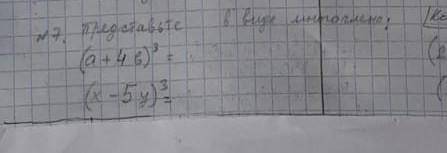 №7. Представьте в виде многочлена:
(a + 4в)³ =
(x - 5y)³ =